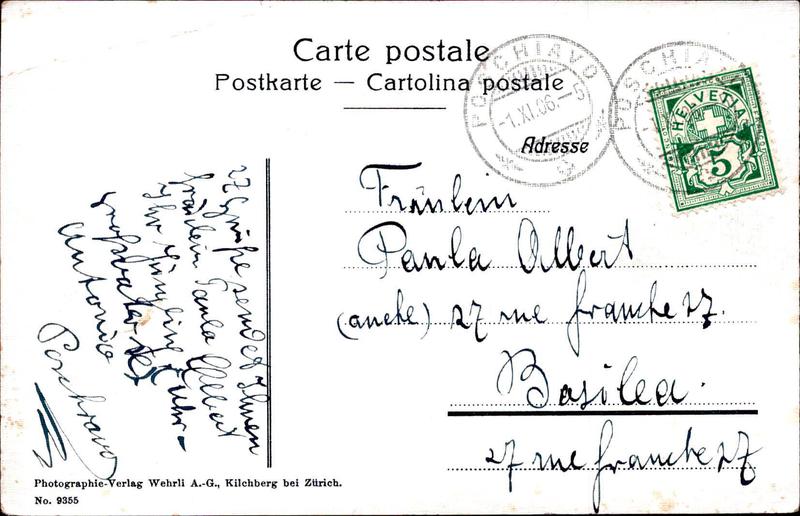 Carte postale
Postkarte — Cartolina postale
POSCHIAVO
-1.XI.06.-5
POSCHIAVO
HELVETIA
5
Adresse
Fräulein
Paula Albert
(anche) 27 rue franche 27.
Basilea.
27 rue franche 27
27 Grüße sendet Ihnen
fräulein Paula Albert
Ihr
Großvater
Antonio
Poschiavo
Photographie-Verlag Wehrli A.-G., Kilchberg bei Zürich.
No. 9355